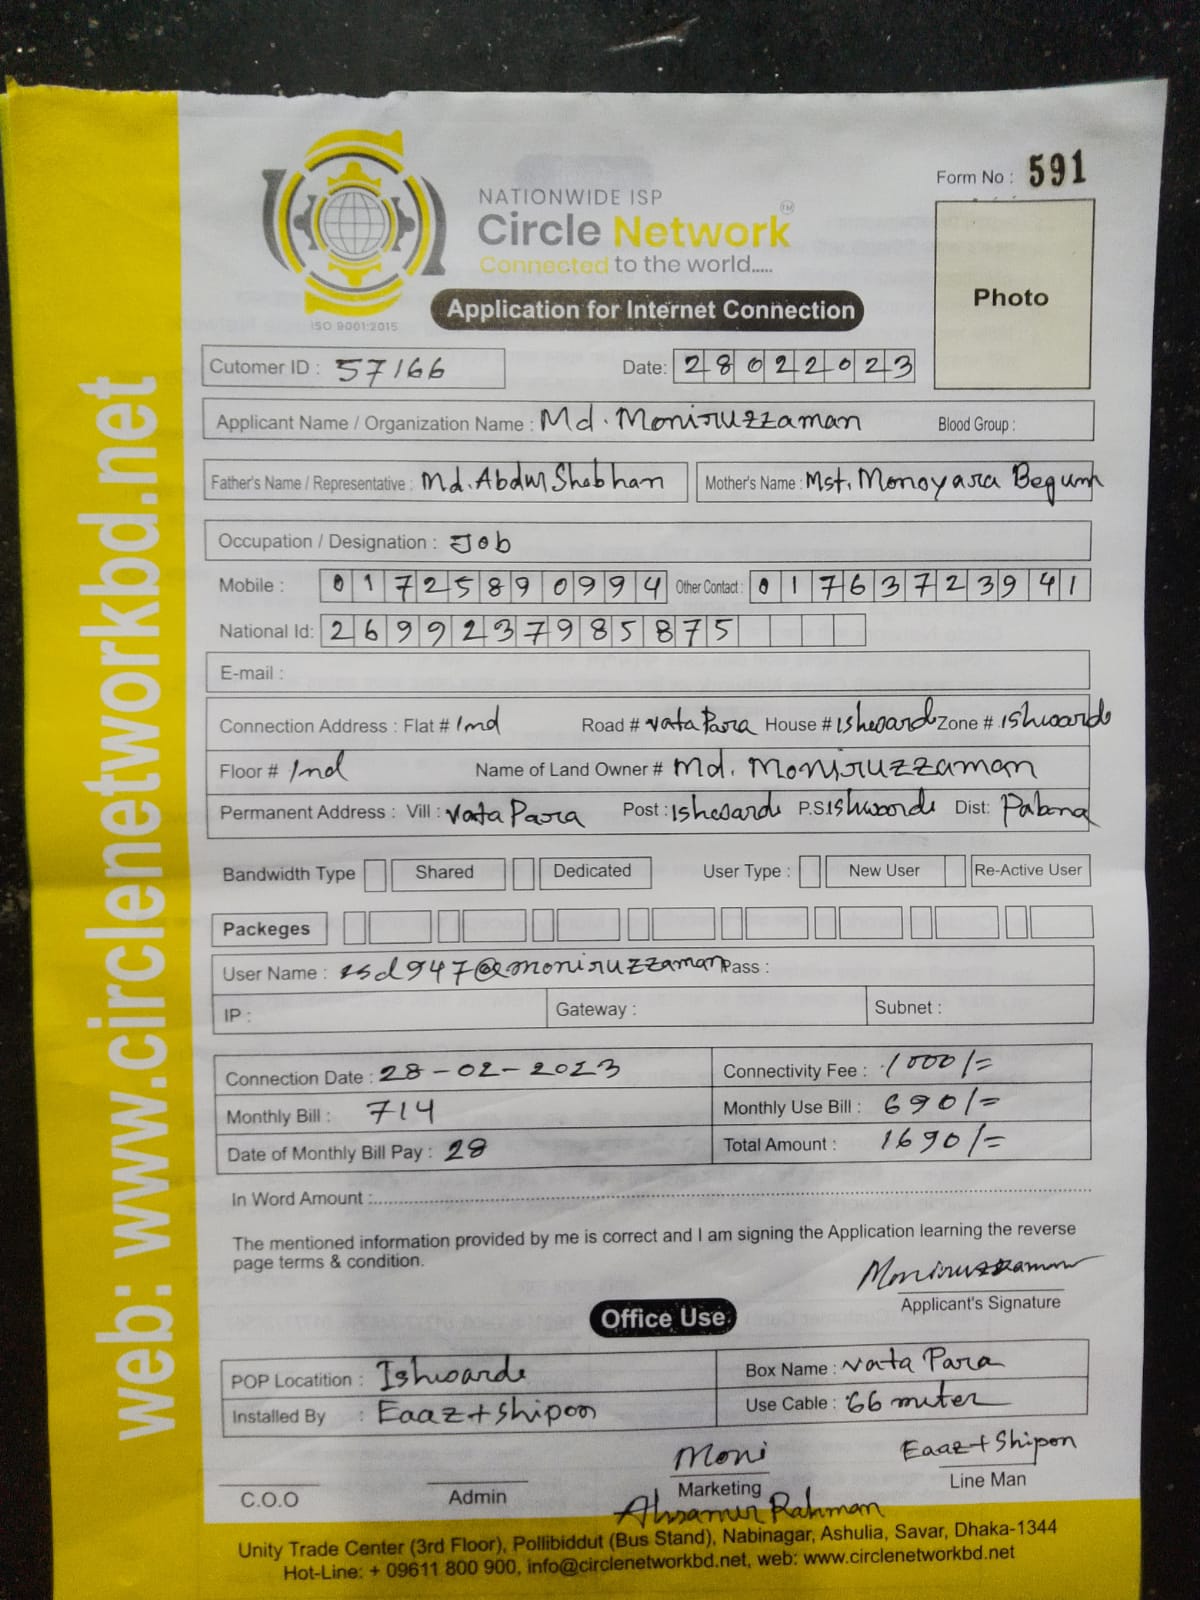 web: www.circlenetworkbd.net
Form No : 591
NATIONWIDE ISP
Circle Network TM
Connected to the world.....
ISO 9001:2015
Application for Internet Connection
Photo
Cutomer ID : 57166 Date: 28022023
Applicant Name / Organization Name : Md. Moniruzzaman Blood Group :
Father's Name / Representative : Md. Abdur Shobhan Mother's Name : Mst. Monoyara Begum
Occupation / Designation : Job
Mobile : 01725890994 Other Contact : 01763723941
National Id: 2699237985875
E-mail :
Connection Address : Flat # 1nd Road # vata Para House # ishwardi Zone # ishwardi
Floor # 1nd Name of Land Owner # Md. Moniruzzaman
Permanent Address : Vill : vata Para Post : ishwardi P.S. Ishwardi Dist: Pabna
Bandwidth Type Shared Dedicated User Type : New User Re-Active User
Packeges
User Name : isd947@moniruzzaman Pass :
IP : Gateway : Subnet :
Connection Date : 28-02-2023 Connectivity Fee : 1000/=
Monthly Bill : 714 Monthly Use Bill : 690/=
Date of Monthly Bill Pay : 28 Total Amount : 1690/=
In Word Amount :
The mentioned information provided by me is correct and I am signing the Application learning the reverse
page terms & condition.
Moniruzzaman
Applicant's Signature
Office Use
POP Locatition : Ishwardi Box Name : vata Para
Installed By : Eaaz+Shipon Use Cable : 66 miter
Moni Eaaz+Shipon
C.O.O Admin Marketing Line Man
Rahman
Unity Trade Center (3rd Floor), Pollibiddut (Bus Stand), Nabinagar, Ashulia, Savar, Dhaka-1344
Hot-Line: + 09611 800 900, info@circlenetworkbd.net, web: www.circlenetworkbd.net